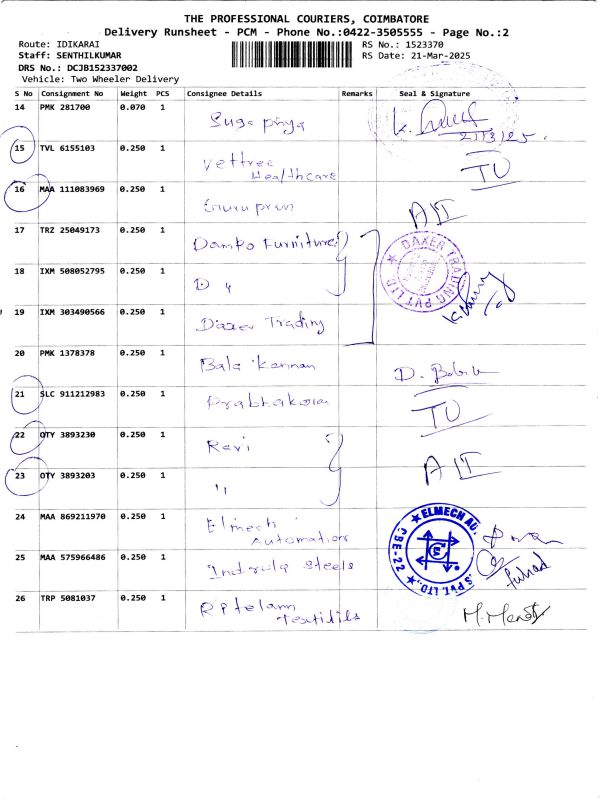 THE PROFESSIONAL COURIERS, COIMBATORE
Delivery Runsheet - PCM - Phone No.:0422-3505555 - Page No.:2
Route: IDIKARAI
RS No.: 1523370
Staff: SENTHILKUMAR
RS Date: 21-Mar-2025
DRS No.: DCJB152337002
Vehicle: Two Wheeler Delivery
S No Consignment No Weight PCS Consignee Details Remarks Seal & Signature
14 PMK 281700 0.070 1 Suga priya
21/3/25
15 TVL 6155103 0.250 1 Vettree
Healthcare
TU
16 MAA 111083969 0.250 1
AIT
17 TRZ 25049173 0.250 1 Damko Furniture
DAXER TRADING PVT LTD
18 IXM 508052795 0.250 1 D "
19 IXM 303490566 0.250 1 Daxer Trading
20 PMK 1378378 0.250 1 Bala Kannan
D. Babu
21 SLC 911212983 0.250 1 Prabhakaran
TU
22 OTY 3893230 0.250 1 Ravi
AIT
23 OTY 3893203 0.250 1 "
24 MAA 869211970 0.250 1 Elmech
Automation
ELMECH AU
S PVT. LTD.
CBE-22
25 MAA 575966486 0.250 1 Steels
26 TRP 5081037 0.250 1